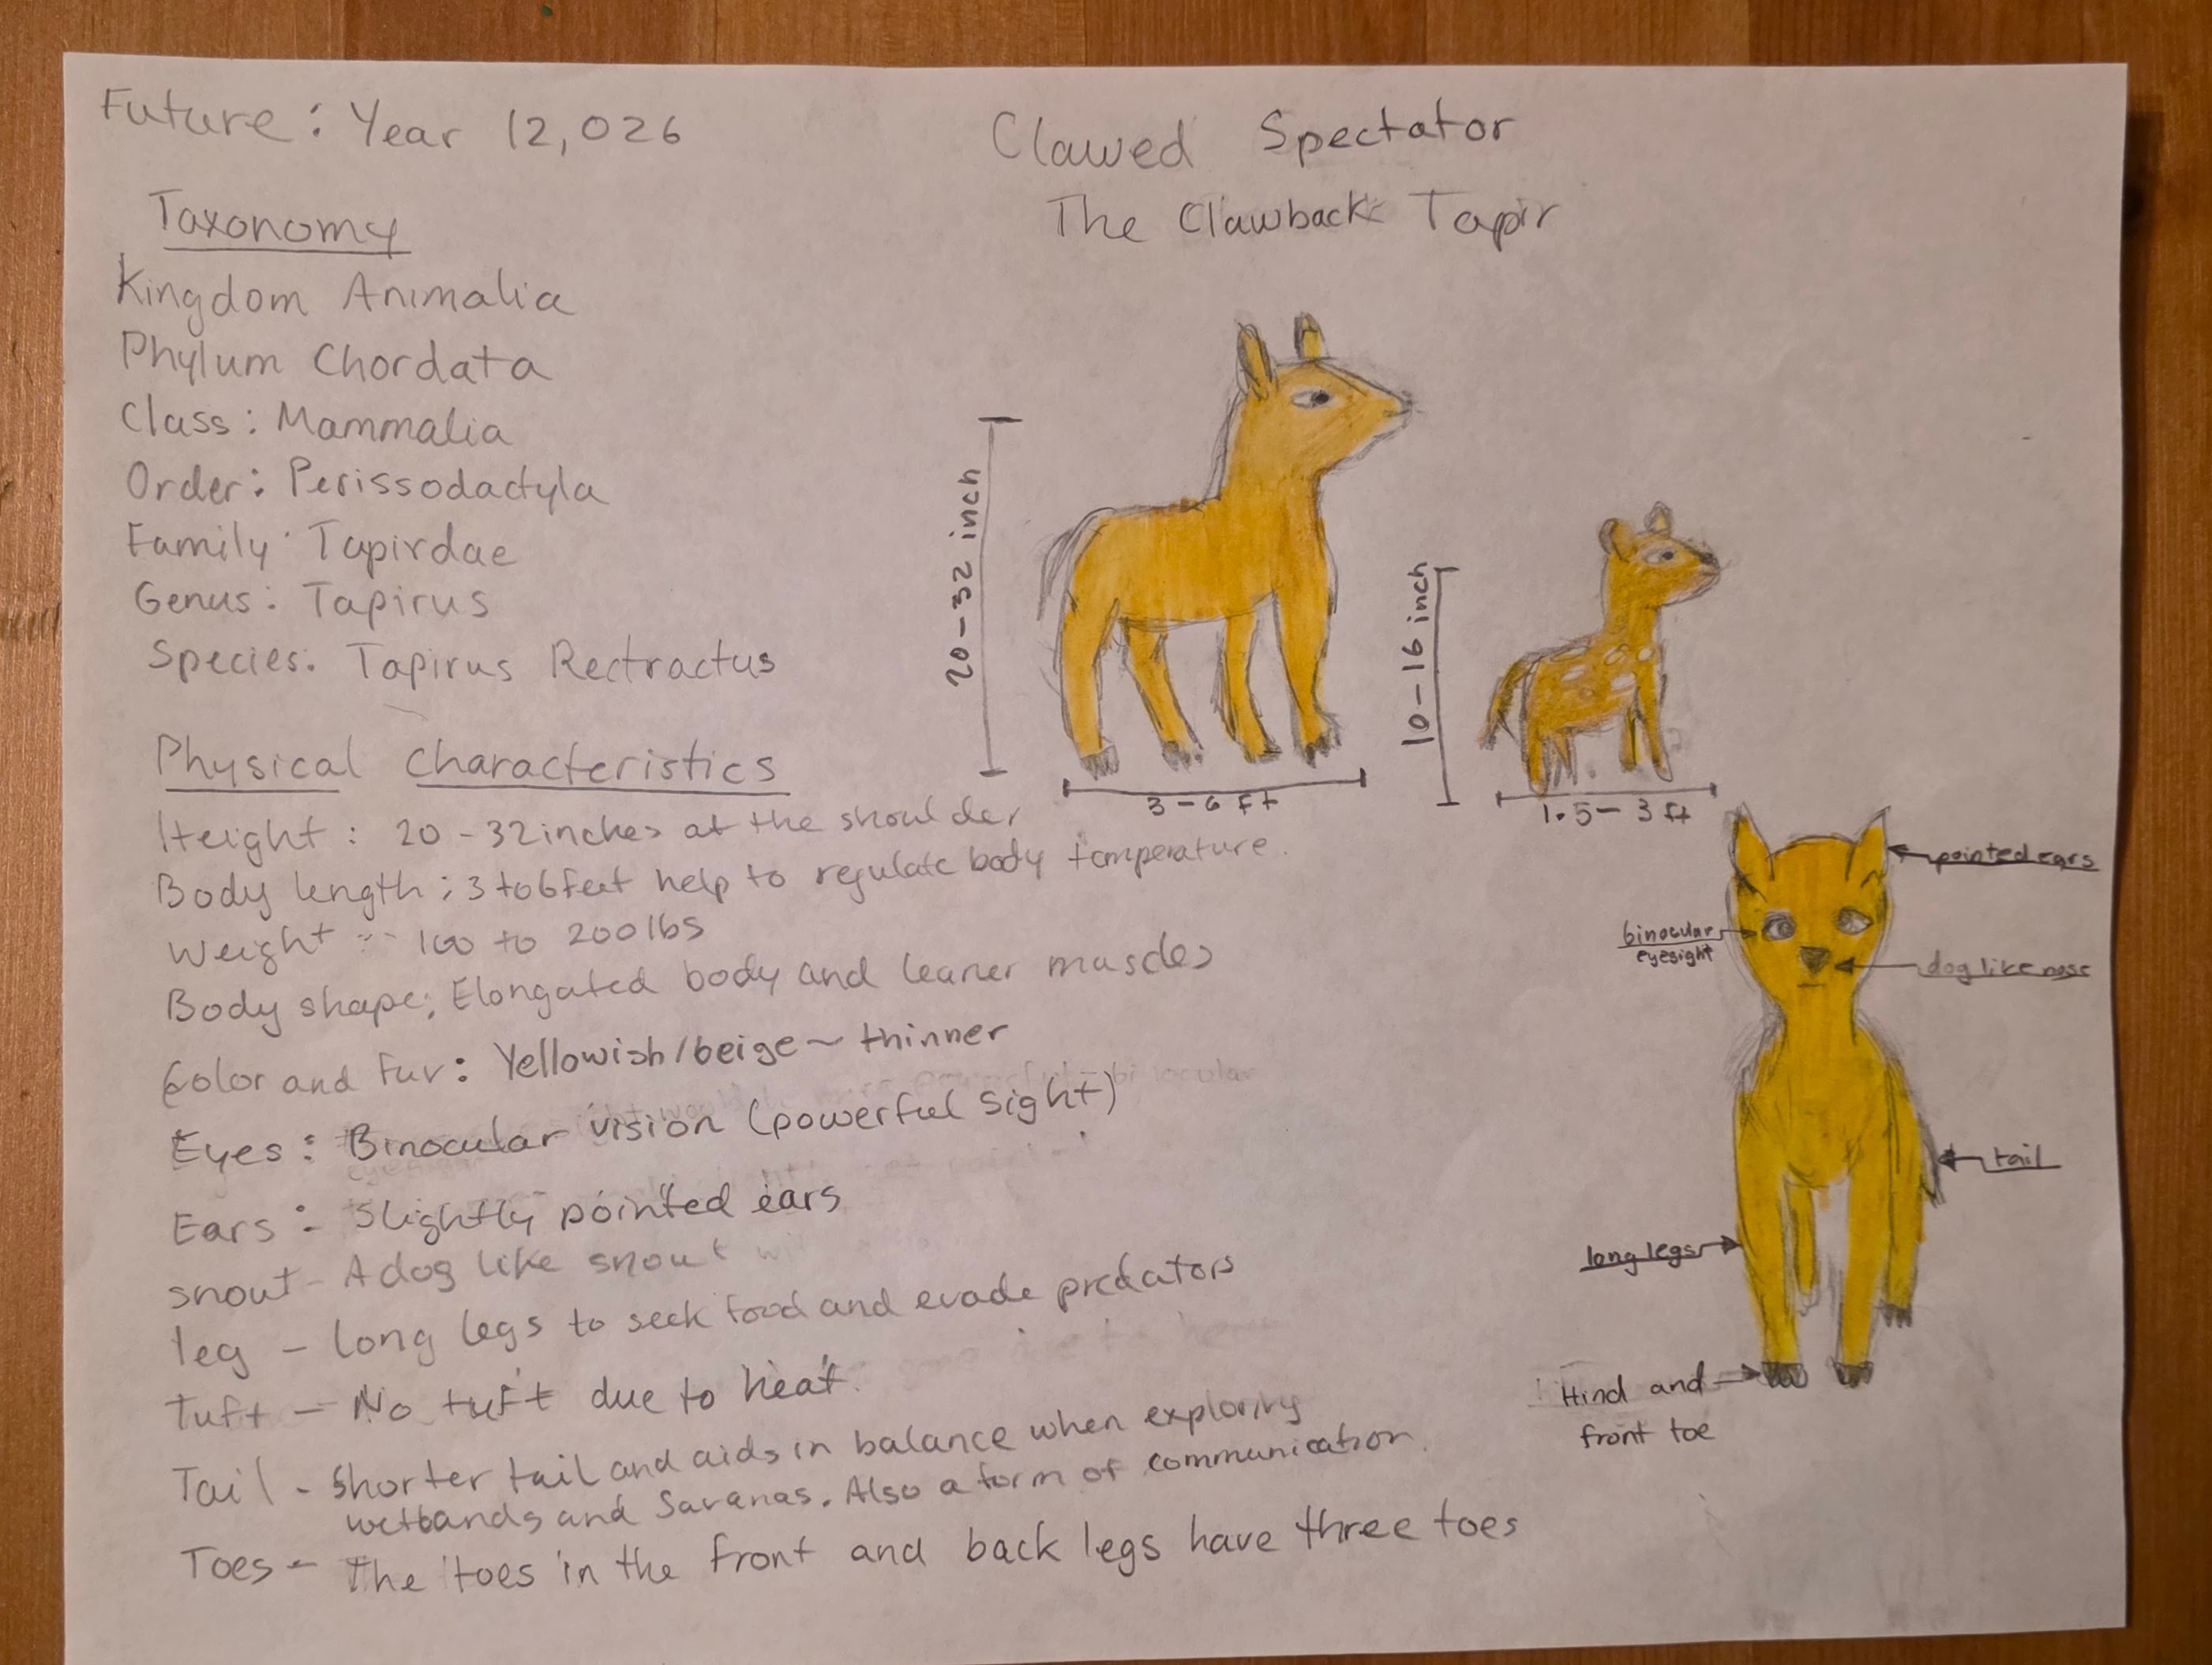 Future: Year 12,026
Clawed Spectator
The Clawback Tapir
Taxonomy
Kingdom Animalia
Phylum Chordata
Class: Mammalia
Order: Perissodactyla
Family Tapirdae
Genus: Tapirus
Species. Tapirus Rectractus
20-32 inch
3-6 ft
10-16 inch
1.5-3 ft
Physical Characteristics
Height: 20-32 inches at the shoulder
Body length; 3 to 6 feet help to regulate body temperature.
Weight -- 100 to 200 lbs
Body shape; Elongated body and leaner muscles
Color and Fur: Yellowish/beige ~ thinner
Eyes: Binocular vision (powerful sight)
Ears:- Slightly pointed ears
snout - A dog like snout
leg - long legs to seek food and evade predators
Tuft - No tuft due to heat.
Tail - Shorter tail and aids in balance when exploring
wetlands and Savanas. Also a form of communication.
Toes - The toes in the front and back legs have three toes
pointed ears
binocular
eyesight
dog like nose
tail
long legs
Hind and
front toe